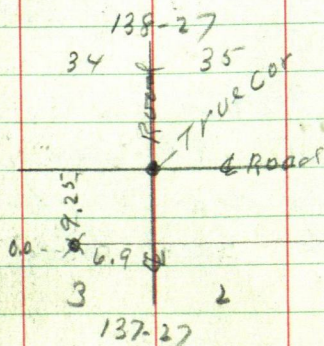 138-27
34 35
Road
True Cor
℄ Road
9.25
0.0
6.9
℄
3 2
137-27